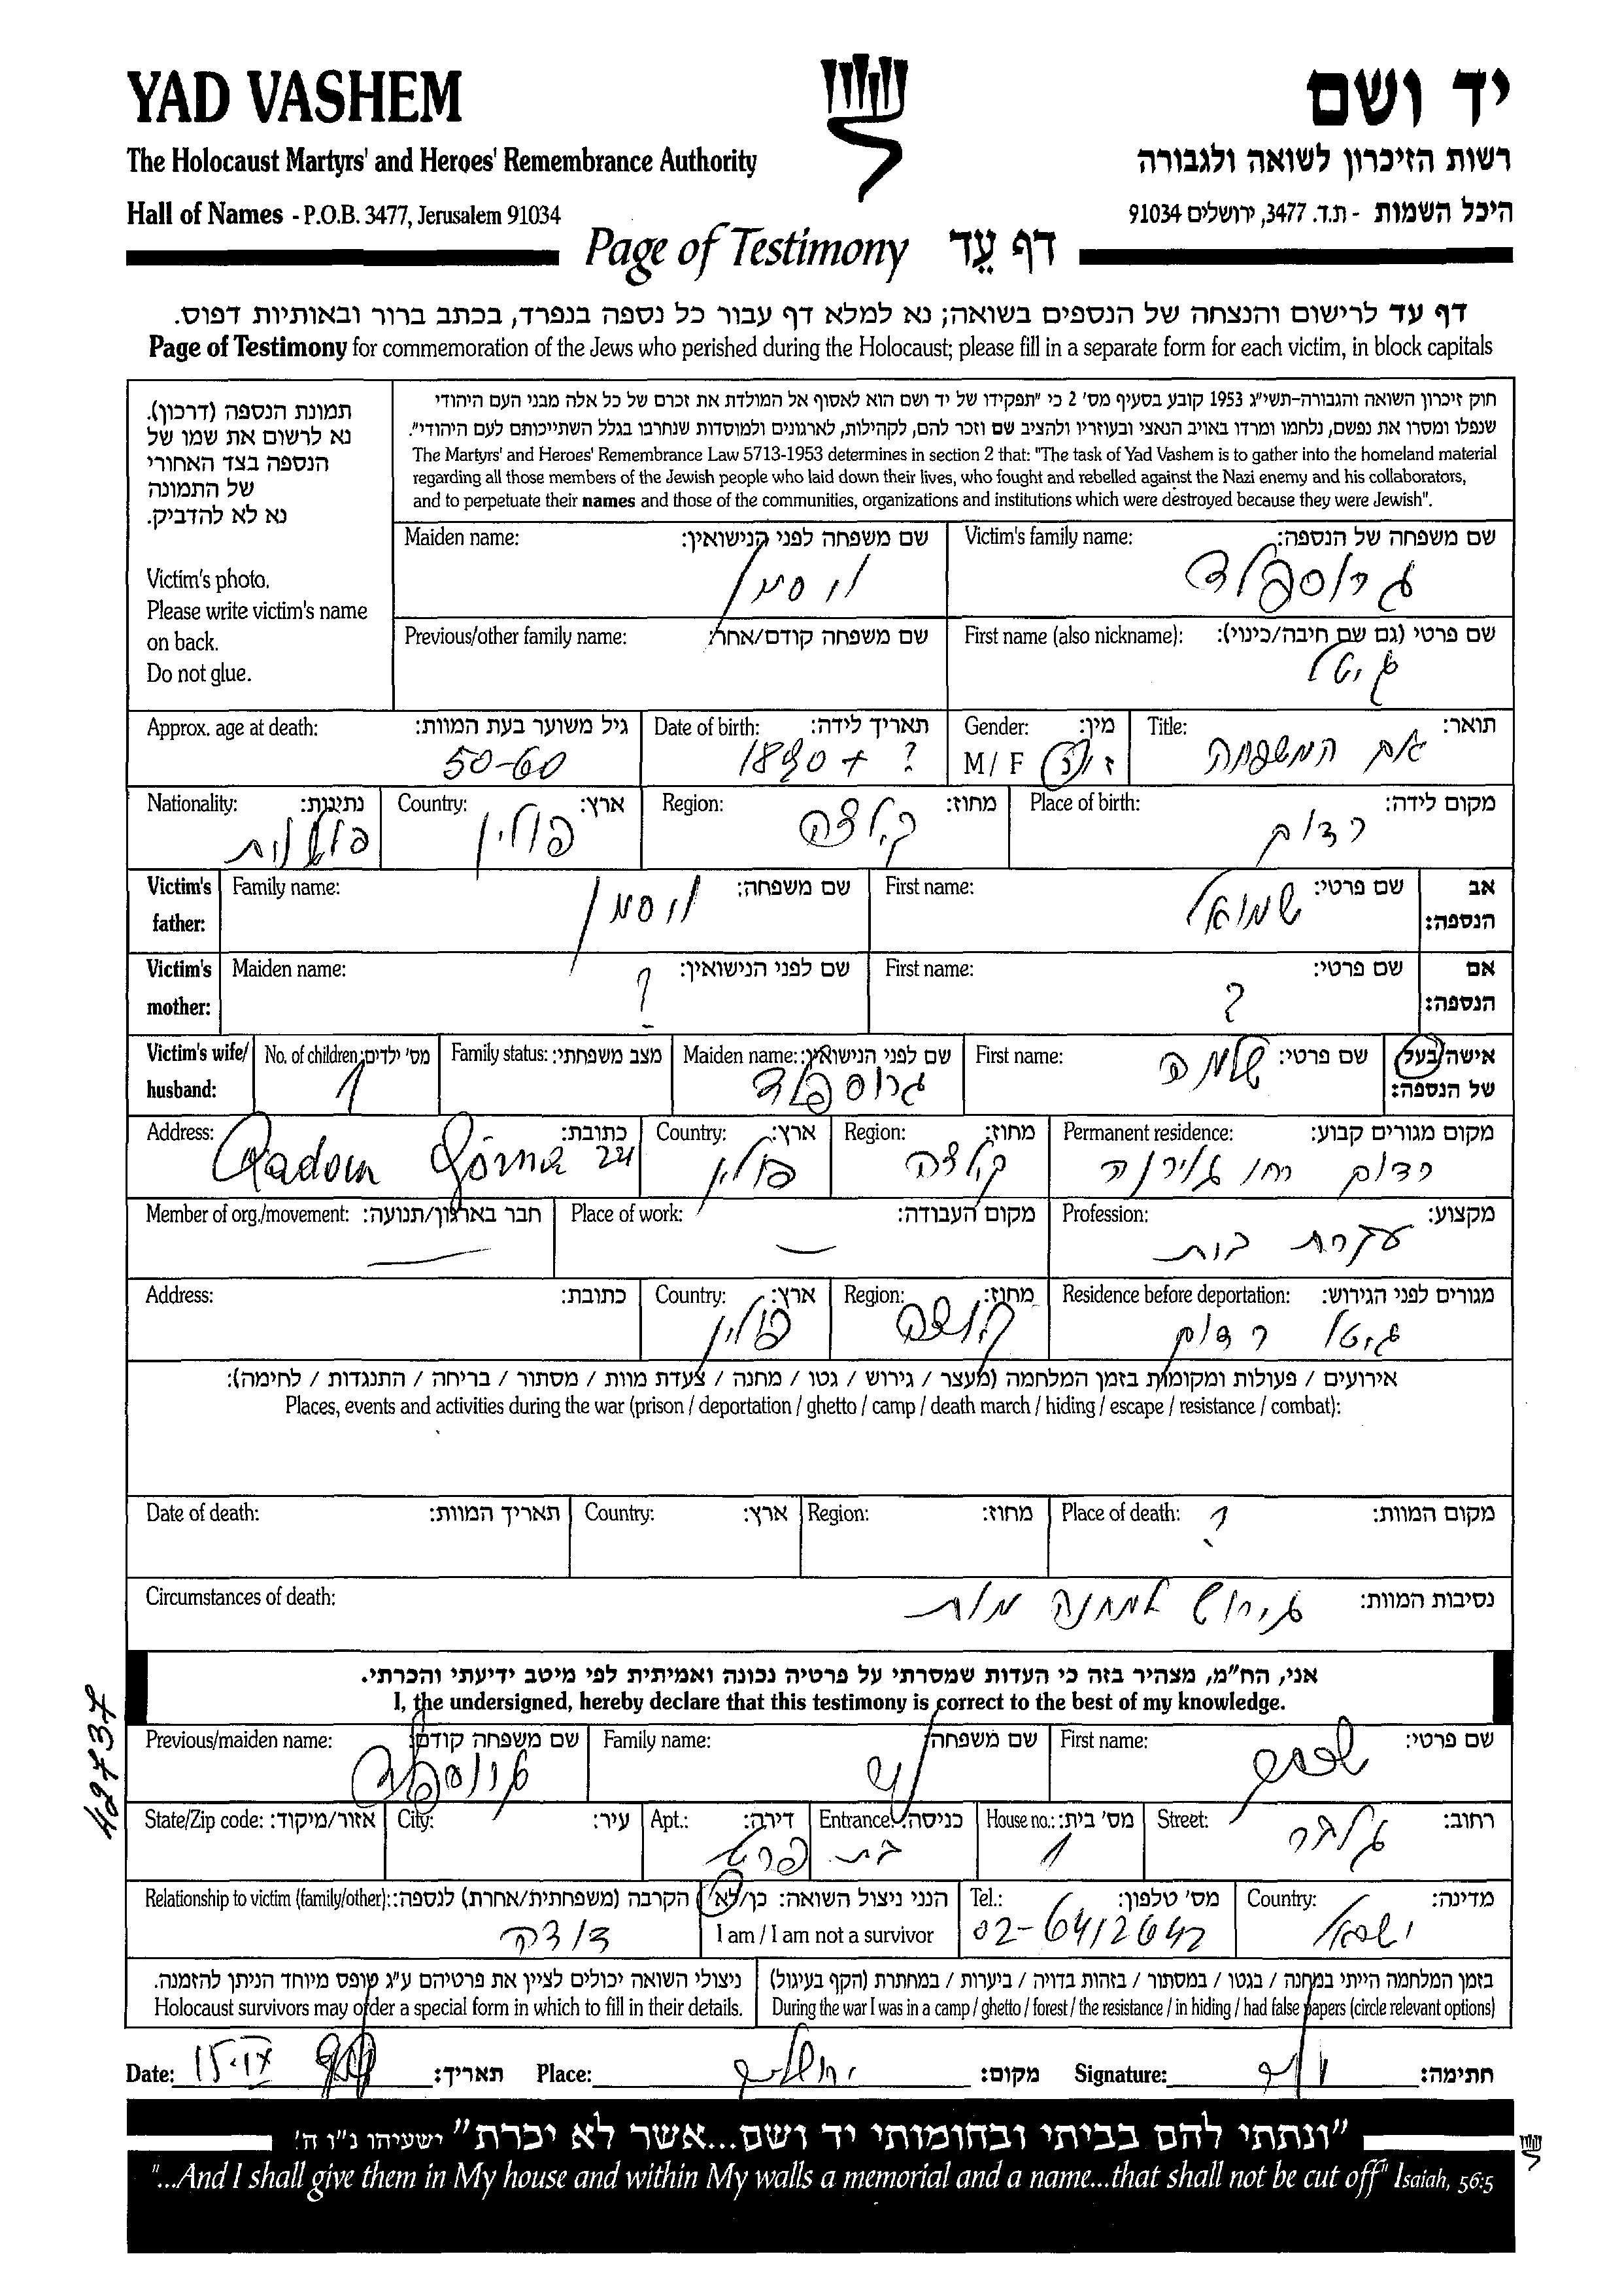 YAD VASHEM
יד ושם
The Holocaust Martyrs' and Heroes' Remembrance Authority
רשות הזיכרון לשואה ולגבורה
Hall of Names - P.O.B. 3477, Jerusalem 91034
היכל השמות - ת.ד. 3477, ירושלים 91034
Page of Testimony דף עֵד
דף עד לרישום והנצחה של הנספים בשואה; נא למלא דף עבור כל נספה בנפרד, בכתב ברור ובאותיות דפוס.
Page of Testimony for commemoration of the Jews who perished during the Holocaust; please fill in a separate form for each victim, in block capitals
תמונת הנספה (דרכון).
נא לרשום את שמו של
הנספה בצד האחורי
של התמונה
נא לא להדביק.
Victim's photo.
Please write victim's name
on back.
Do not glue.
חוק זיכרון השואה והגבורה-תשי"ג 1953 קובע בסעיף מס' 2 כי "תפקידו של יד ושם הוא לאסוף אל המולדת את זכרם של כל אלה מבני העם היהודי
שנפלו ומסרו את נפשם, נלחמו ומרדו באויב הנאצי ובעוזריו ולהציב שם וזכר להם, לקהילות, לארגונים ולמוסדות שנחרבו בגלל השתייכותם לעם היהודי".
The Martyrs' and Heroes' Remembrance Law 5713-1953 determines in section 2 that: "The task of Yad Vashem is to gather into the homeland material
regarding all those members of the Jewish people who laid down their lives, who fought and rebelled against the Nazi enemy and his collaborators,
and to perpetuate their names and those of the communities, organizations and institutions which were destroyed because they were Jewish".
Victim's family name: שם משפחה של הנספה:
גרוספלד
Maiden name: שם משפחה לפני הנישואין:
ויסמן
First name (also nickname): שם פרטי (גם שם חיבה/כינוי):
גיטל
Previous/other family name: שם משפחה קודם/אחר:
Title: תואר:
אם המשפחה
Gender: מין:
M / F ז / נ
Date of birth: תאריך לידה:
1890 + ?
Approx. age at death: גיל משוער בעת המוות:
50-60
Place of birth: מקום לידה:
רדום
Region: מחוז:
קילצה
Country: ארץ:
פולין
Nationality: נתינות:
פולנית
Victim's father: אב הנספה:
First name: שם פרטי:
שמואל
Family name: שם משפחה:
ויסמן
Victim's mother: אם הנספה:
First name: שם פרטי:
?
Maiden name: שם לפני הנישואין:
?
Victim's wife/ husband: אישה/בעל של הנספה:
First name: שם פרטי:
שלמה
Maiden name: שם לפני הנישואין:
גרוספלד
Family status: מצב משפחתי:
No. of children: מס' ילדים:
1
Permanent residence: מקום מגורים קבוע:
רדום רחו גורנה
Region: מחוז:
קילצה
Country: ארץ:
פולין
Address: כתובת:
Radom Górna 24
Profession: מקצוע:
עקרת בית
Place of work: מקום העבודה:
—
Member of org./movement: חבר בארגון/תנועה:
—
Residence before deportation: מגורים לפני הגירוש:
גיטו רדום
Region: מחוז:
קילצה
Country: ארץ:
פולין
Address: כתובת:
אירועים / פעולות ומקומות בזמן המלחמה (מעצר / גירוש / גטו / מחנה / צעדת מוות / מסתור / בריחה / התנגדות / לחימה):
Places, events and activities during the war (prison / deportation / ghetto / camp / death march / hiding / escape / resistance / combat):
Place of death: מקום המוות:
?
Region: מחוז:
Country: ארץ:
Date of death: תאריך המוות:
Circumstances of death: נסיבות המוות:
גירוש למחנה מוות
אני, הח"מ, מצהיר בזה כי העדות שמסרתי על פרטיה נכונה ואמיתית לפי מיטב ידיעתי והכרתי.
I, the undersigned, hereby declare that this testimony is correct to the best of my knowledge.
42737
First name: שם פרטי:
Family name: שם משפחה:
Previous/maiden name: שם משפחה קודם:
גרוספלד
Street: רחוב:
House no.: מס' בית:
1
Entrance: כניסה:
בת
Apt.: דירה:
City: עיר:
State/Zip code: אזור/מיקוד:
Country: מדינה:
ישראל
Tel.: מס' טלפון:
02-6412642
הנני ניצול השואה: כן/לא
I am / I am not a survivor
Relationship to victim (family/other): הקרבה (משפחתית/אחרת) לנספה:
דודה
בזמן המלחמה הייתי במחנה / בגטו / במסתור / בזהות בדויה / ביערות / במחתרת (הקף בעיגול)
During the war I was in a camp / ghetto / forest / the resistance / in hiding / had false papers (circle relevant options)
ניצולי השואה יכולים לציין את פרטיהם ע"ג טופס מיוחד הניתן להזמנה.
Holocaust survivors may order a special form in which to fill in their details.
Date: 15.IV תאריך:
Place: ירושלים מקום:
Signature: חתימה:
"ונתתי להם בביתי ובחומותי יד ושם...אשר לא יכרת" ישעיהו נ"ו ה'
"...And I shall give them in My house and within My walls a memorial and a name...that shall not be cut off" Isaiah, 56:5